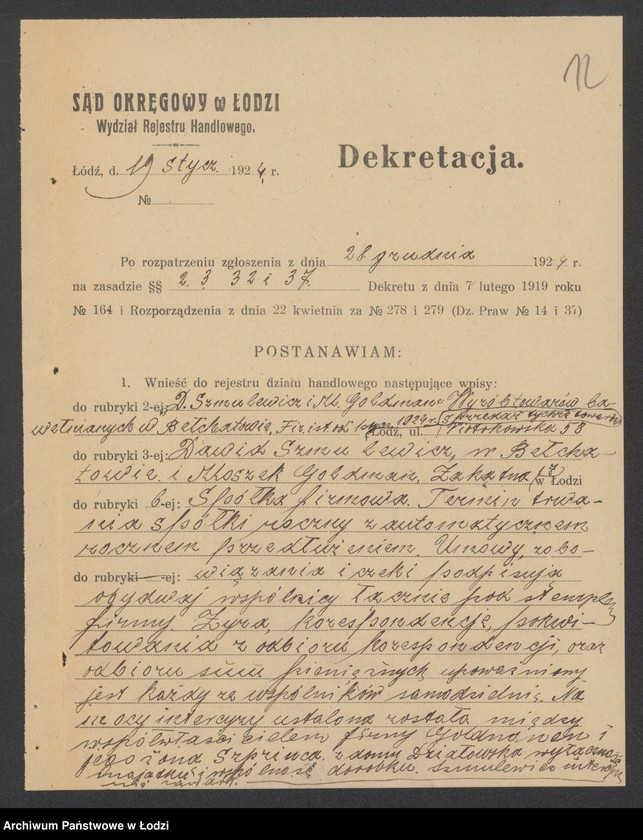 12
SĄD OKRĘGOWY w ŁODZI
Wydział Rejestru Handlowego.
Łódź, d. 19 stycz. 1924 r.
№
Dekretacja.
Po rozpatrzeniu zgłoszenia z dnia 28 grudnia 1924 r.
na zasadzie §§ 2. 3 32 i 37. Dekretu z dnia 7 lutego 1919 roku
№ 164 i Rozporządzenia z dnia 22 kwietnia za № 278 i 279 (Dz. Praw № 14 i 37)
POSTANAWIAM:
1. Wnieść do rejestru działu handlowego następujące wpisy:
do rubryki 2-ej: "D. Szmulewicz i M. Goldman" Wyrób towarów ba-
wełnianych w Bełchatowie, Fir. istn. od 1924 r. i sprzedaż tychże towarów
Łódź, ul. Piotrkowska 58
do rubryki 3-ej: Dawid Szmulewicz, w Bełcha-
towie i Moszek Goldman, Zakątna 17 w Łodzi
do rubryki 6-ej: Spółka firmowa. Termin trwa-
nia spółki roczny z automatycznem
rocznem przedłużeniem. Umowy, zobo-
do rubryki -ej: wiązania i czeki podpisują
obydwaj wspólnicy łącznie pod stemplem
firmy. Żyra, korespondencję, pokwi-
towania z odbioru korespondencji, oraz
odbioru sum pieniężnych upoważniony
jest każdy ze wspólników samodzielnie. Na
mocy intercyzy ustalona została między
współwłaścicielem firmy Goldmanem i
jego żoną Szprincą z domu Działowską wyłączność
majątku i wspólność dorobku. Szmulewicz intercyzy
nie zawarł.
Archiwum Państwowe w Łodzi